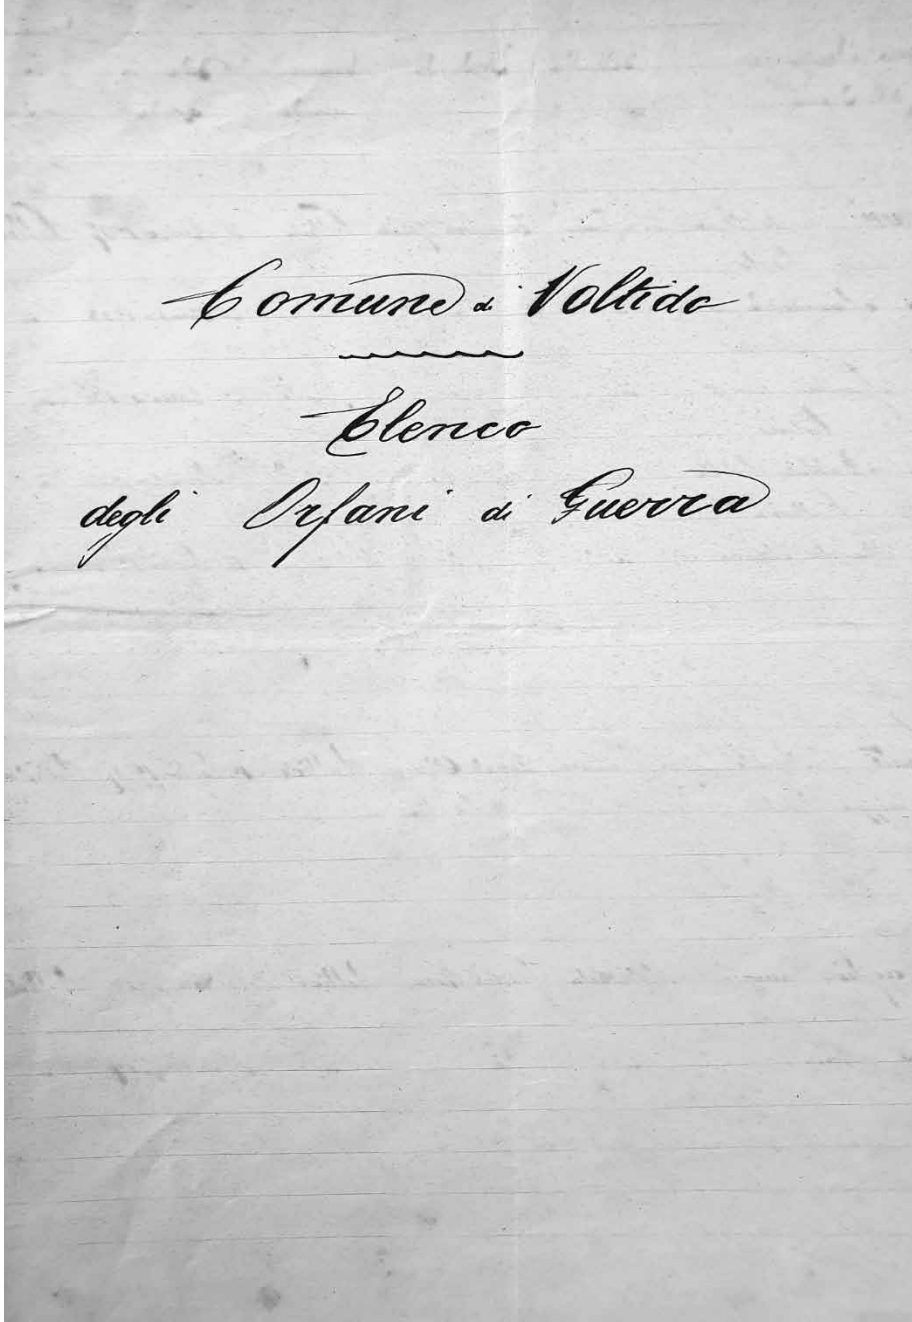 Comune di Voltido
Elenco
degli Orfani di Guerra